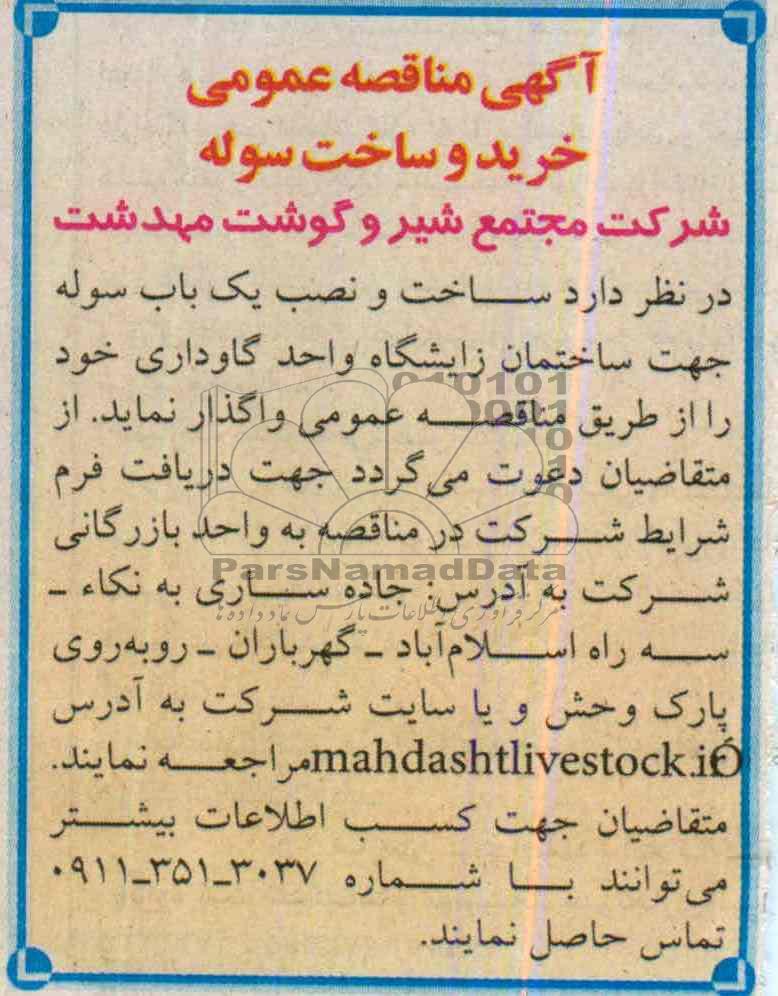 آگهی مناقصه عمومی
خرید و ساخت سوله
شرکت مجتمع شیر و گوشت مهدشت
در نظر دارد ساخت و نصب یک باب سوله
جهت ساختمان زایشگاه واحد گاوداری خود
را از طریق مناقصه عمومی واگذار نماید. از
متقاضیان دعوت می‌گردد جهت دریافت فرم
شرایط شرکت در مناقصه به واحد بازرگانی
شرکت به آدرس: جاده ساری به نکاء ـ
سه راه اسلام‌آباد ـ گهرباران ـ روبه‌روی
پارک وحش و یا سایت شرکت به آدرس
mahdashtlivestock.ir مراجعه نمایند.
متقاضیان جهت کسب اطلاعات بیشتر
می‌توانند با شماره ۳۰۳۷ـ۳۵۱ـ۰۹۱۱
تماس حاصل نمایند.
ParsNamadData
مرکز فرآوری اطلاعات پارس نماد داده‌ها